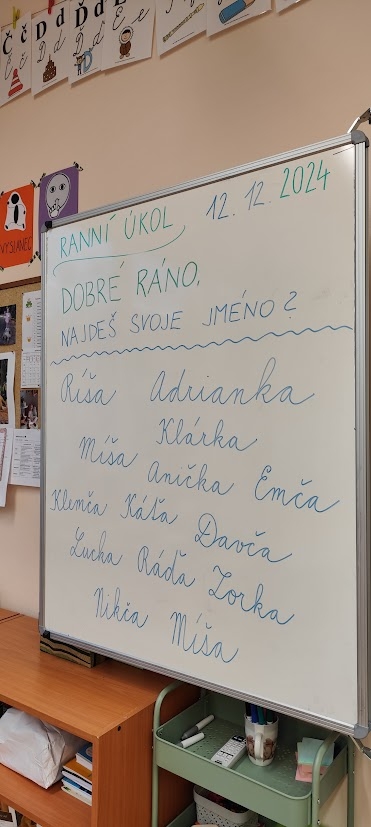 Č č D d Ď ď E e
VYSLANEC
RANNÍ ÚKOL 12. 12. 2024
DOBRÉ RÁNO,
NAJDEŠ SVOJE JMÉNO?
Ríša Adrianka
Klárka
Míša Anička Emča
Klemča Káťa Davča
Lucka Ráďa Zorka
Nikča Míša